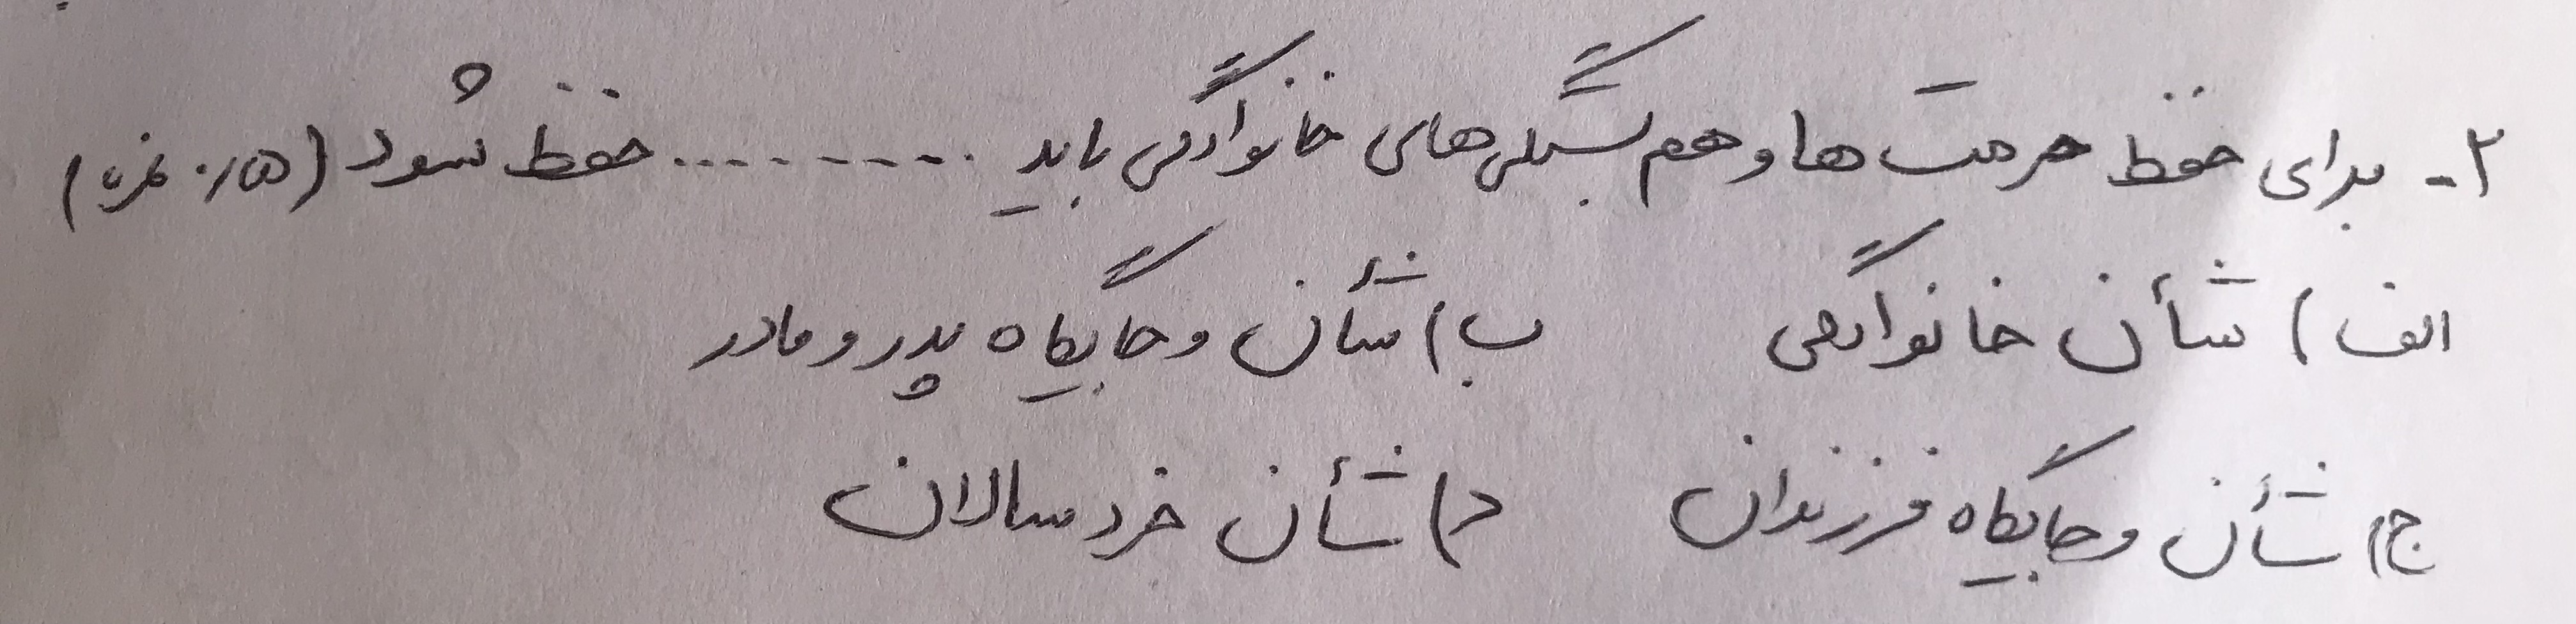 ۲- برای حفظ حرمت ها و هم بستگی های خانوادگی باید ......... حفظ شود (۰/۵ نمره)
الف) شأن خانوادگی ب) شأن و جایگاه پدر و مادر
ج) شأن و جایگاه فرزندان د) شأن خردسالان